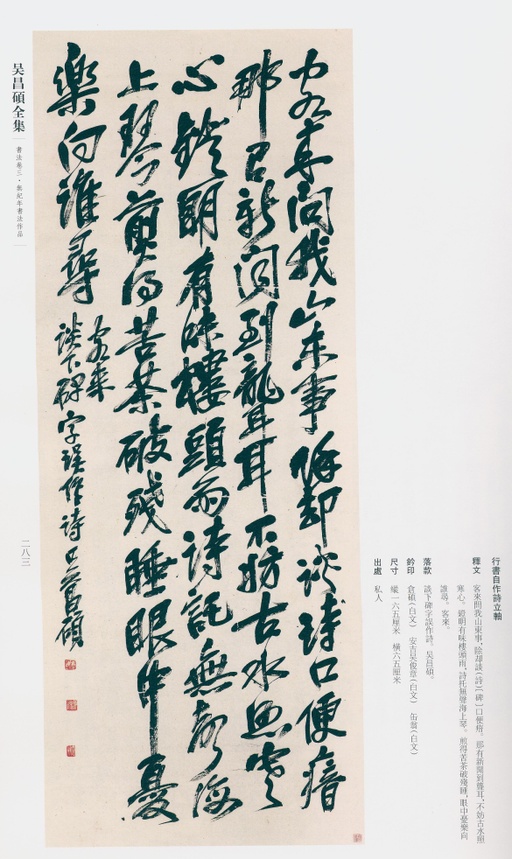 行書自作詩立軸
釋文 客來問我山東事，除却談（詩）〔碑〕口便瘖。那有新聞到聾耳，不妨古水照
寒心。鐙明有味樓頭雨，詩托無聲海上琴。煎得苦茶破殘睡，眼中憂樂向
誰尋。客來。
落款 談下碑字誤作詩。吳昌碩。
鈐印 倉碩（白文） 安吉吳俊章（白文） 缶翁（白文）
尺寸 縱一六五厘米 橫六五厘米
出處 私人
客來問我山東事除却談詩口便瘖
那有新聞到聾耳不妨古水照寒
心鐙明有味樓頭雨詩託無聲海
上琴煎得苦茶破殘睡眼中憂
樂向誰尋
客來
談下碑字誤作詩吳昌碩
吳昌碩全集
書法卷三·無紀年書法作品
二八三